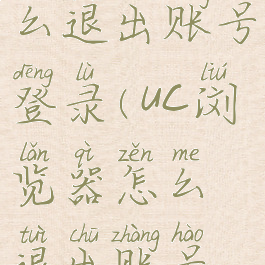 么退出账号
dēng lù liú
登录(UC浏
lǎn qì zěn me
览器怎么
tuì chū zhàng hào
退出账号